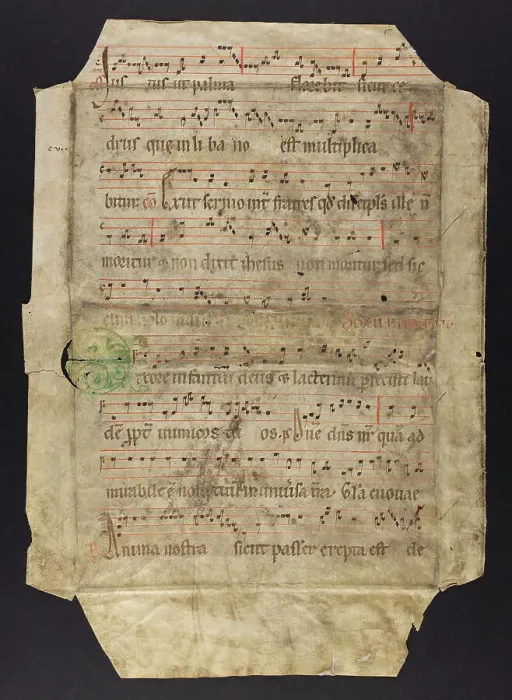 Jus tus ut palma florebit sicut ce
drus que in li ba no est multiplica
bitur co Exiit sermo int fratres qd discipls ille n
moritur & non dixit ihesus non moritur sed sic
eum volo
ex ore infantium deus & lactentium perfecisti lau
dē ppt inimicos tu os. p Dne dns nr quā ad
mirabile ē nomen tuum in universa tra. Gla euouae
Anima nostra sicut passer erepta est de